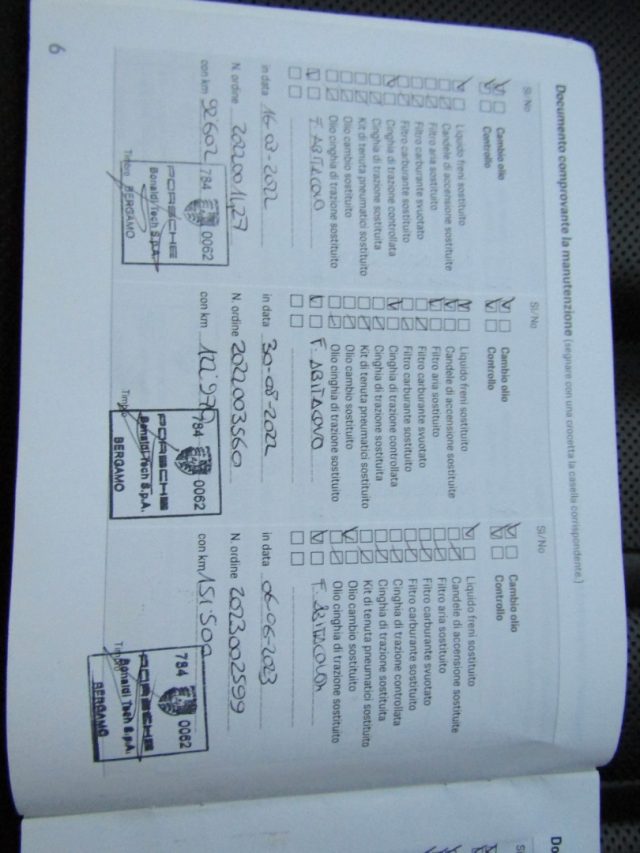 Documento comprovante la manutenzione (segnare con una crocetta la casella corrispondente.)
Si/No
Cambio olio
Controllo
Liquido freni sostituito
Candele di accensione sostituite
Filtro aria sostituito
Filtro carburante svuotato
Filtro carburante sostituito
Cinghia di trazione controllata
Cinghia di trazione sostituita
Kit di tenuta pneumatici sostituito
Olio cambio sostituito
Olio cinghia di trazione sostituito
F. ABITACOLO
in data 16-02-2022
N. ordine
con km 92602
784 0062
PORSCHE
Bonaldi Tech S.p.A.
BERGAMO
Timbro
Si/No
Cambio olio
Controllo
Liquido freni sostituito
Candele di accensione sostituite
Filtro aria sostituito
Filtro carburante svuotato
Filtro carburante sostituito
Cinghia di trazione controllata
Cinghia di trazione sostituita
Kit di tenuta pneumatici sostituito
Olio cambio sostituito
Olio cinghia di trazione sostituito
F. ABITACOLO
in data 30-08-2022
N. ordine 2022003560
con km 122.979
784 0062
PORSCHE
Bonaldi Tech S.p.A.
BERGAMO
Si/No
Cambio olio
Controllo
Liquido freni sostituito
Candele di accensione sostituite
Filtro aria sostituito
Filtro carburante svuotato
Filtro carburante sostituito
Cinghia di trazione controllata
Cinghia di trazione sostituita
Kit di tenuta pneumatici sostituito
Olio cambio sostituito
Olio cinghia di trazione sostituito
in data 06-06-2023
N. ordine 2023002599
con km 151.500
784 0062
PORSCHE
Bonaldi Tech S.p.A.
BERGAMO
6
Do